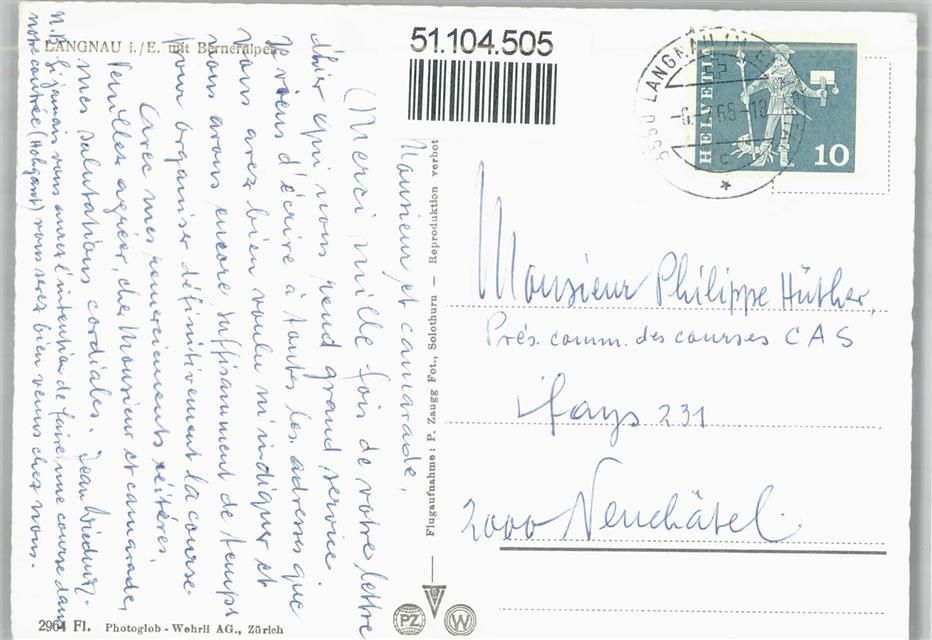 LANGNAU i./E. mit Berneralpen
51.104.505
HELVETIA
10
3550 LANGNAU IM
Monsieur et camarade,
(Merci mille fois de votre lettre
d'hier qui nous rend grand service.
Je viens d'écrire à toutes les adresses que
vous avez bien voulu m'indiquer et
nous avons encore suffisamment de temps
pour organiser définitivement la course.
Avec mes remerciements réitérés,
Veuillez agréer, cher Monsieur et camarade,
mes salutations cordiales.
N.B. Si jamais vous aurez l'intention de faire une course dans
notre contrée (Hohgant) vous serez bien venus chez nous.
Flugaufnahme: P. Zaugg Fot., Solothurn — Reproduktion verbot
Monsieur Philippe Hüther,
Prés. comm. des courses CAS
Fays 231
2000 Neuchâtel
2964 Fl. Photoglob - Wehrli AG., Zürich
PZ
W